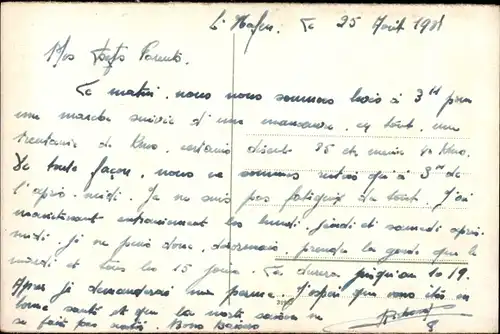 le 25 Août 19
Mes Parents.
Ce matin, nous nous sommes levés à 3H pour
une marche suivie d'une manœuvre, en tout, une
trentaine de Kms, certains disent 35 et, Kms.
De toute façon, nous ne sommes rentrés qu'à 3H de
l'après-midi. Je ne suis pas fatigué du tout. J'ai
maintenant entrainement les lundi, jeudi et samedi après-
midi. je ne puis donc, désormais, prendre la garde que le
mardi et tous les 15 jours. Ça durera jusqu'au 10/9.
Après je demanderai une perme. J'espère que vous êtes en
bonne santé et que la
se fait pas. Bons Baisers